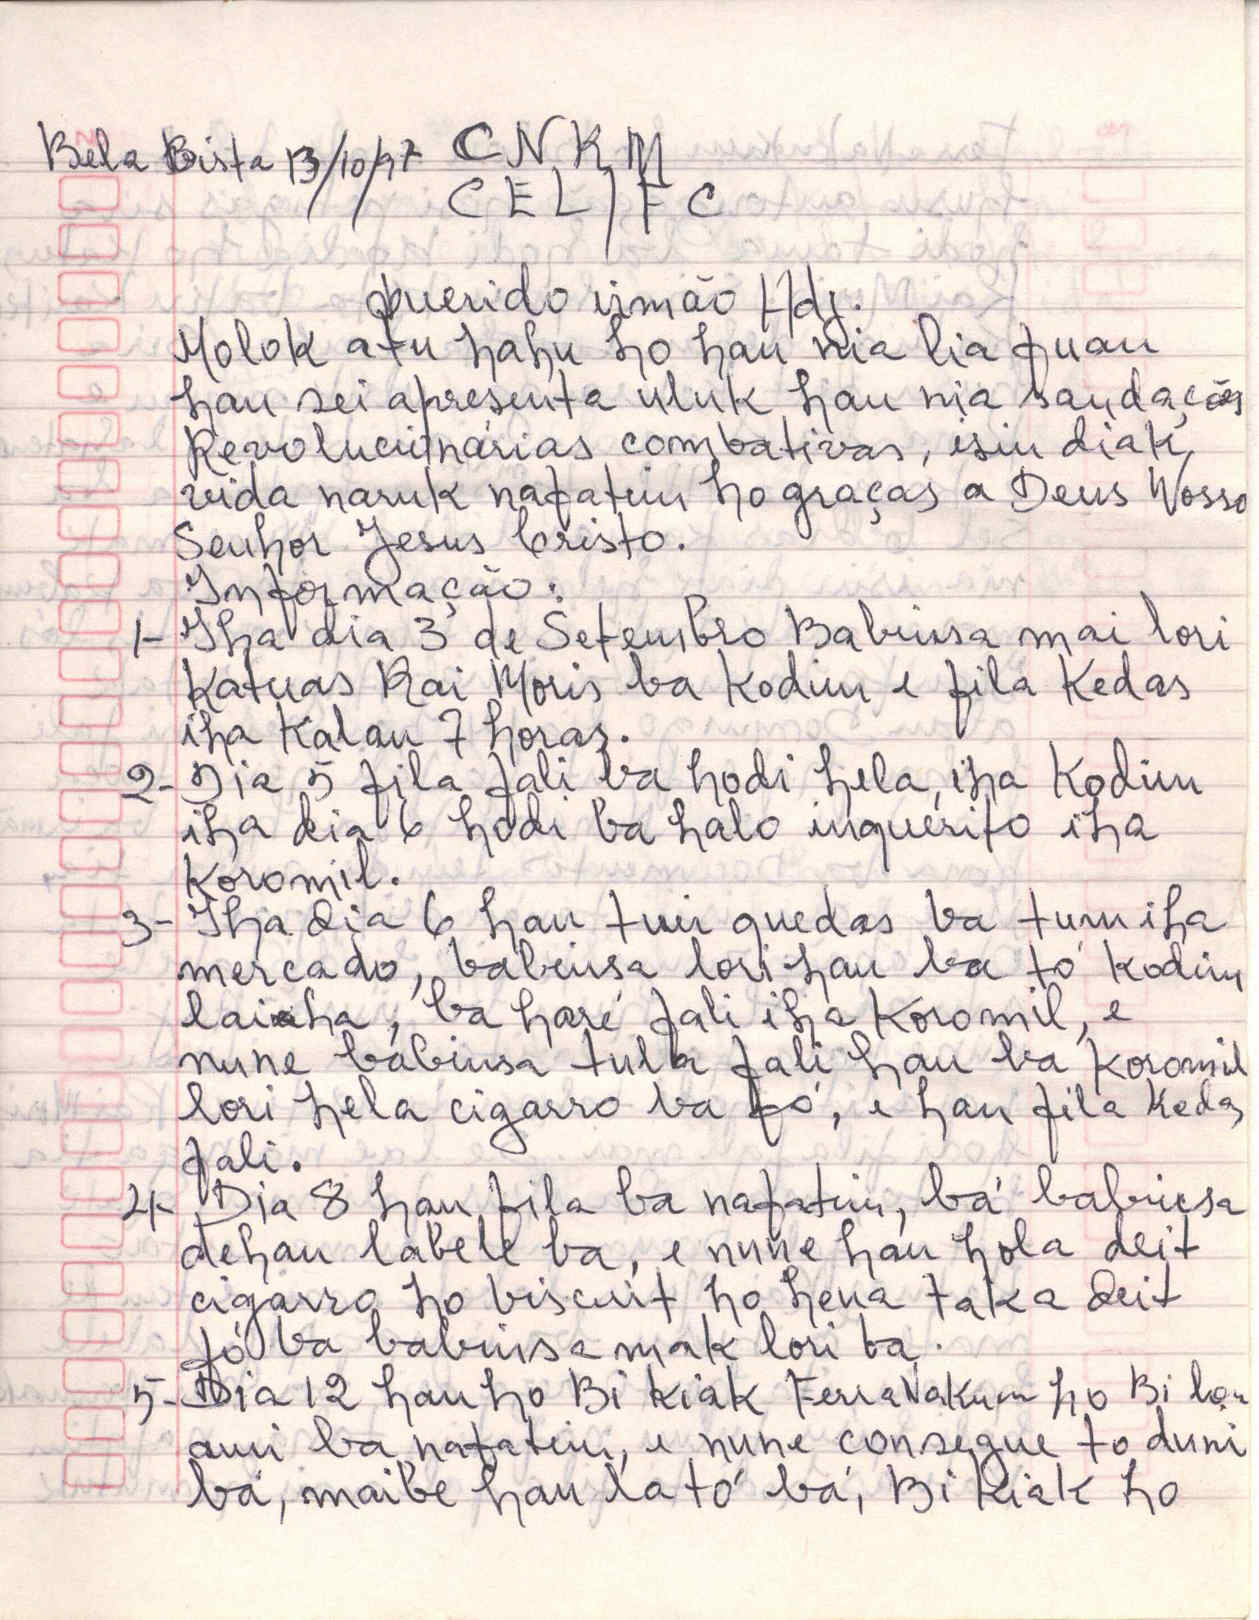 Bela Bista 13/10/97 CNRM
CEL/FC
Querido irmão Hdy.
Molok atu hahu ho hau nia lia fuan
hau sei apresenta uluk hau nia saudações
Revolucinárias combativas, isin diak,
vida naruk nafatin ho graças a Deus Nosso
Senhor Jesus Cristo.
Informação:
1- Iha dia 3 de Setembro Babinsa mai lori
Katuas Rai Moris ba Kodim e fila Kedas
iha Kalan 7 horas.
2- Dia 5 fila fali ba hodi hela, iha Kodim
iha dia 6 hodi ba halo inquerito iha
Koromil.
3- Iha dia 6 hau tuir quedas ba tum iha
mercado, babinsa lori hau ba tó kodim
laiha, ba haré fali iha Koromil, e
nune babinsa tula fali hau ba Koromil
lori hela cigarro ba fó, e hau fila Kedas
fali.
4- Dia 8 hau fila ba nafatin, bá babinsa
dehan labele ba, e nune hau hola deit
cigarro ho biscuit ho hena taka deit
fó ba babinsa mak lori ba.
5- Dia 12 hau ho Bi Kiak Ferra Nakum ho Bi
ami ba nafatin, e nune consegue to duni
bá, maibe hau la tó bá, Bi Kiak ho